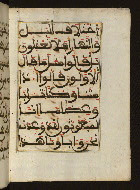 اختلاف اليل
والنهار افلا تعقلون
بل قالوا مثل ما قال
الاولون قالوا اذا
متنا وكنا ترابا
وعظما انا
لمبعوثون لقد وعدنا
نحن واباونا هذا